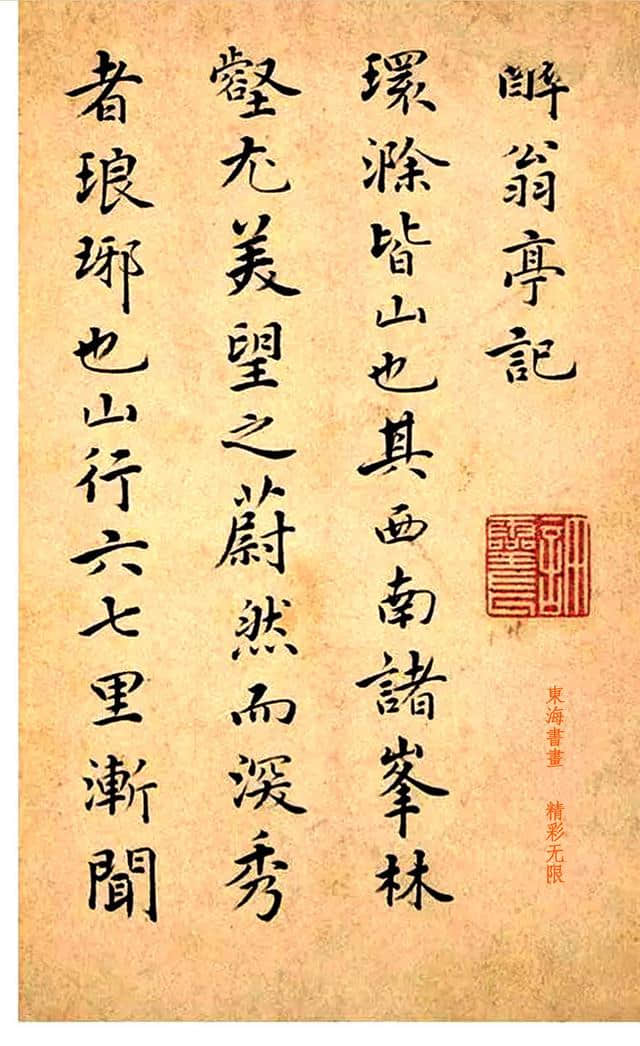 醉翁亭記
環滁皆山也其西南諸峯林
壑尤美望之蔚然而深秀
者琅琊也山行六七里漸聞
東海書畫 精彩无限